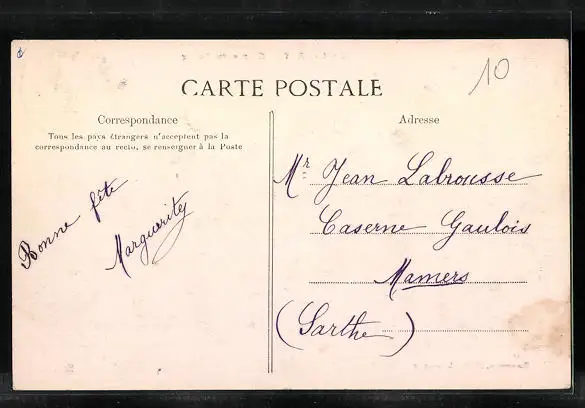 CARTE POSTALE
10
Correspondance
Tous les pays étrangers n'acceptent pas la
correspondance au recto, se renseigner à la Poste
Bonne fête
Marguerite
Adresse
Mr Jean Labrousse
Caserne Gaulois
Mamers
(Sarthe)